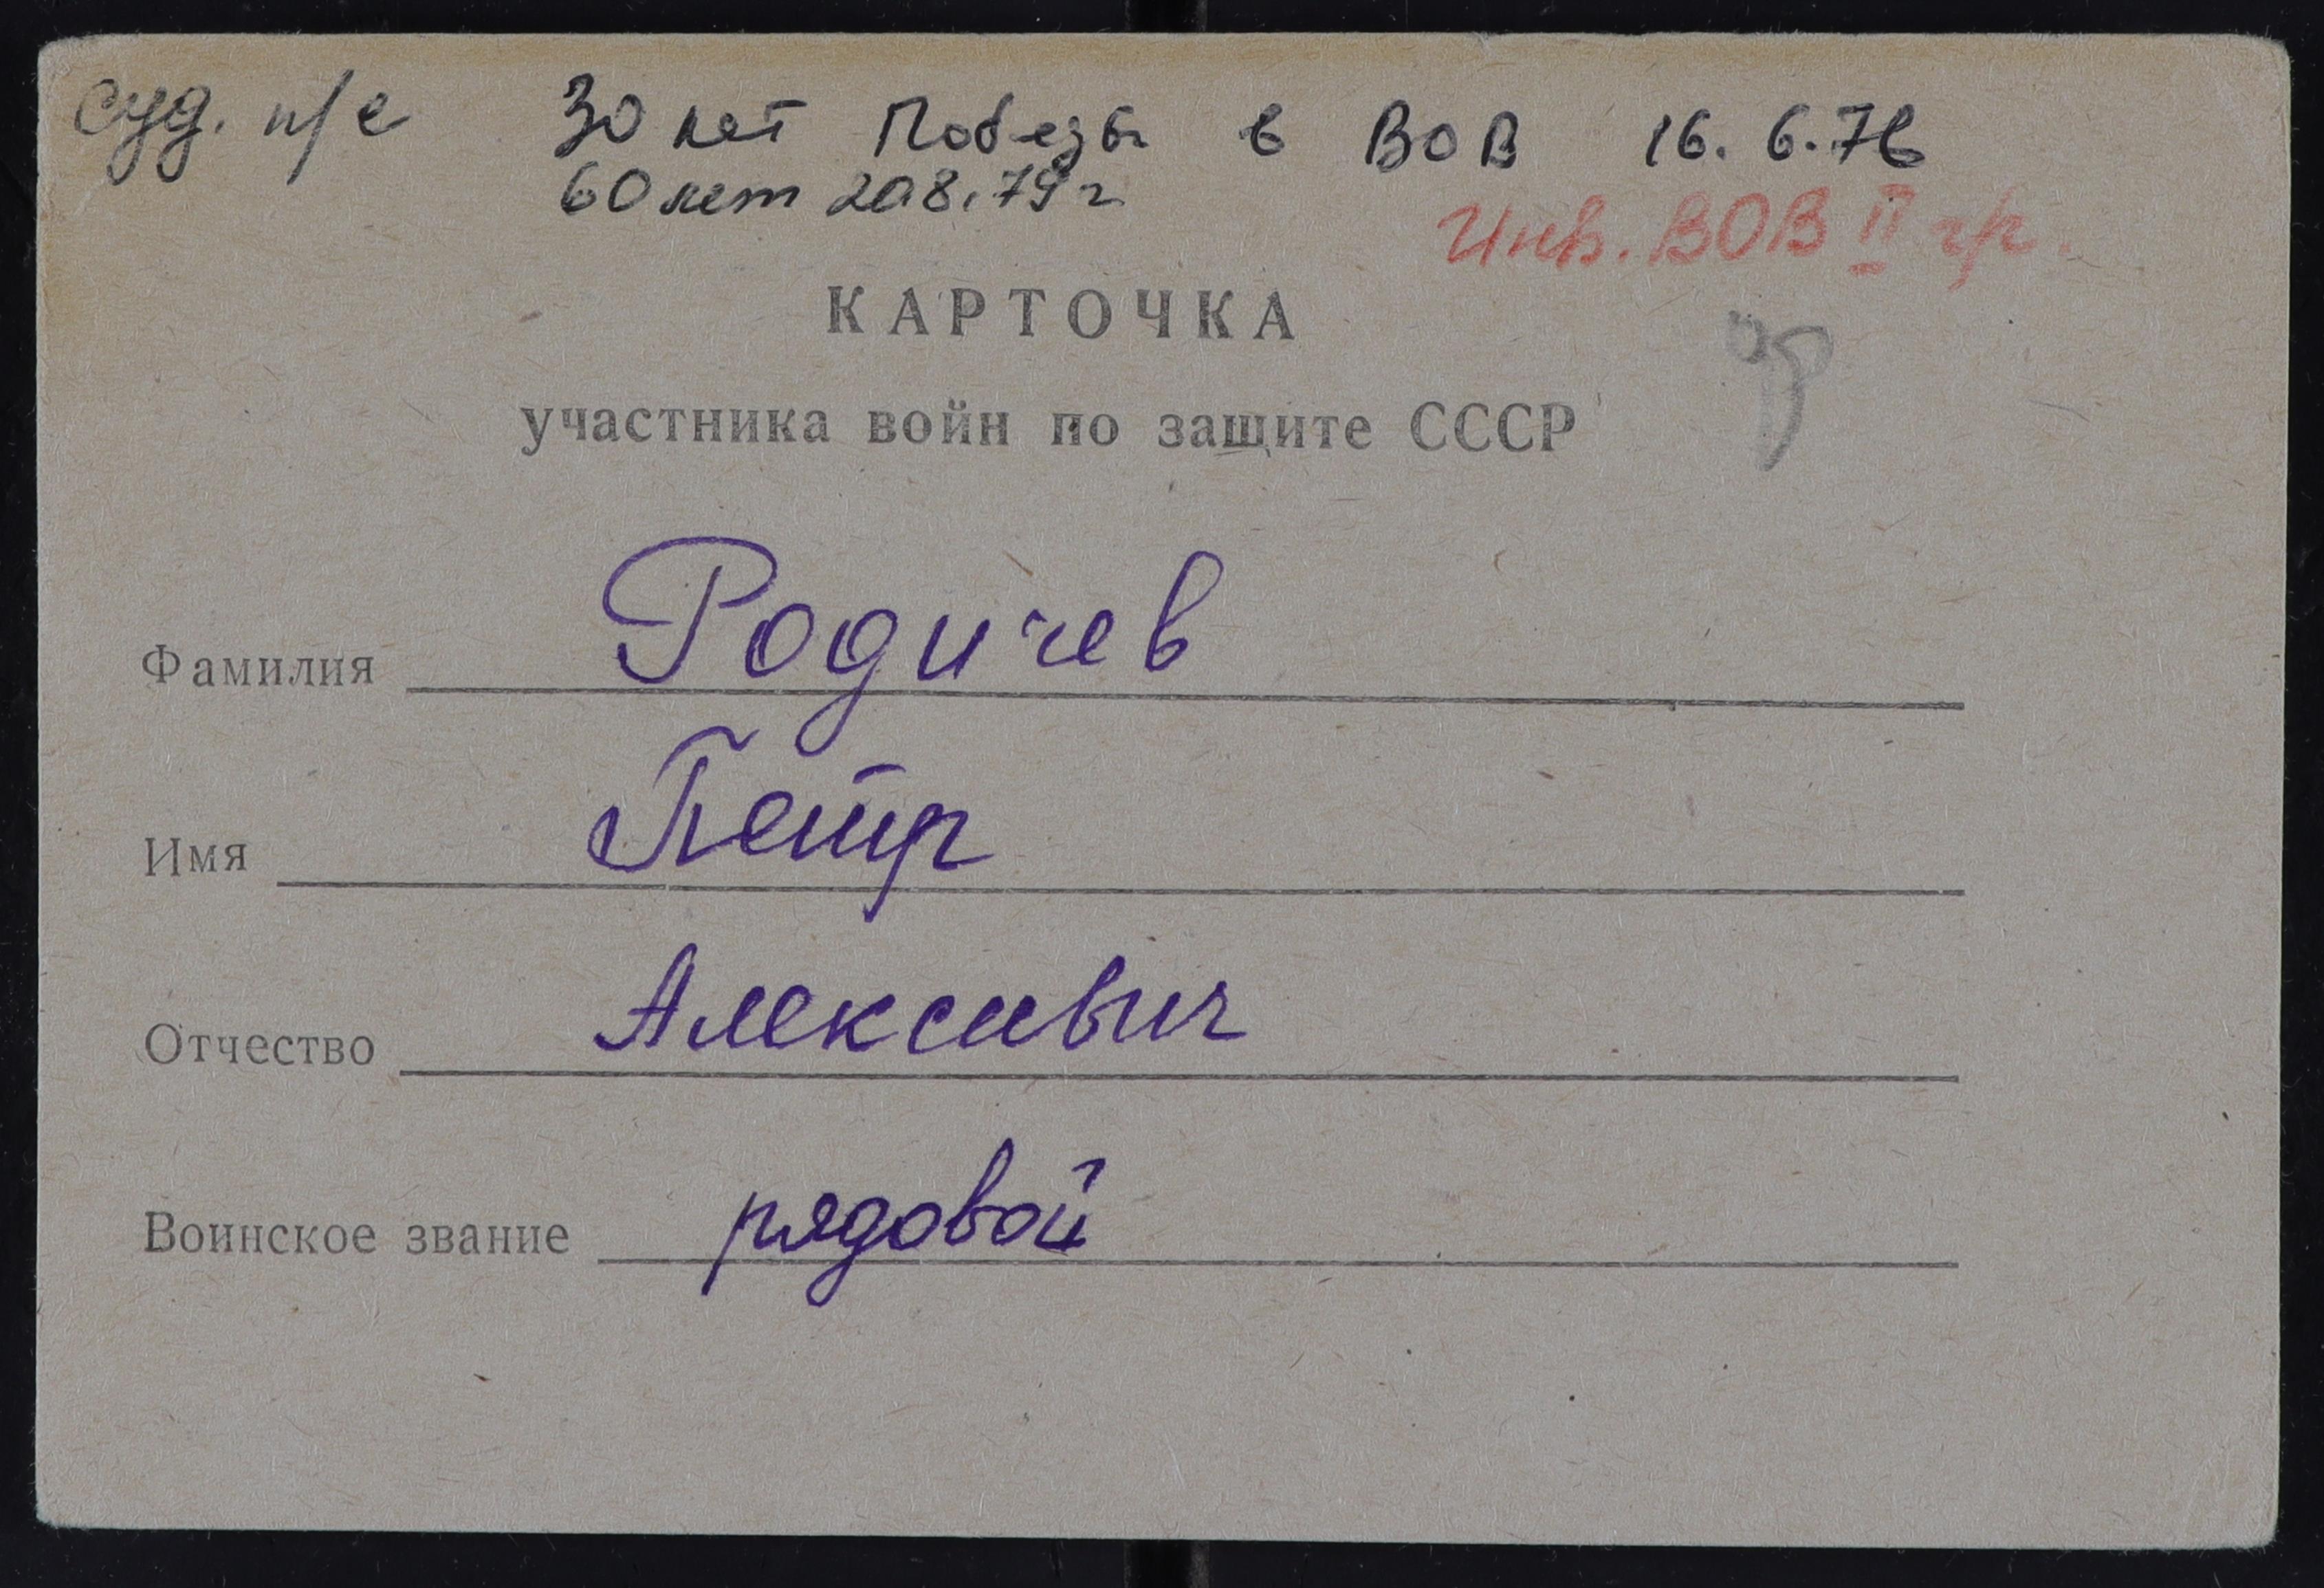 суд. п/с 30 лет Победы в ВОВ 16.6.76
60 лет 20.8.79 г
Инв. ВОВ II гр.
КАРТОЧКА
участника войн по защите СССР
Фамилия Родичев
Имя Петр
Отчество Алексеевич
Воинское звание рядовой